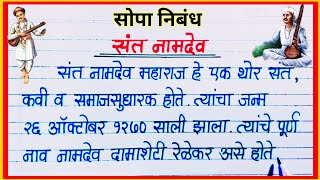 सोपा निबंध
संत नामदेव
संत नामदेव महाराज हे एक थोर संत,
कवी व समाजसुधारक होते. त्यांचा जन्म
२६ ऑक्टोबर १२७० साली झाला. त्यांचे पूर्ण
नाव नामदेव दामाशेटी रेळेकर असे होते.